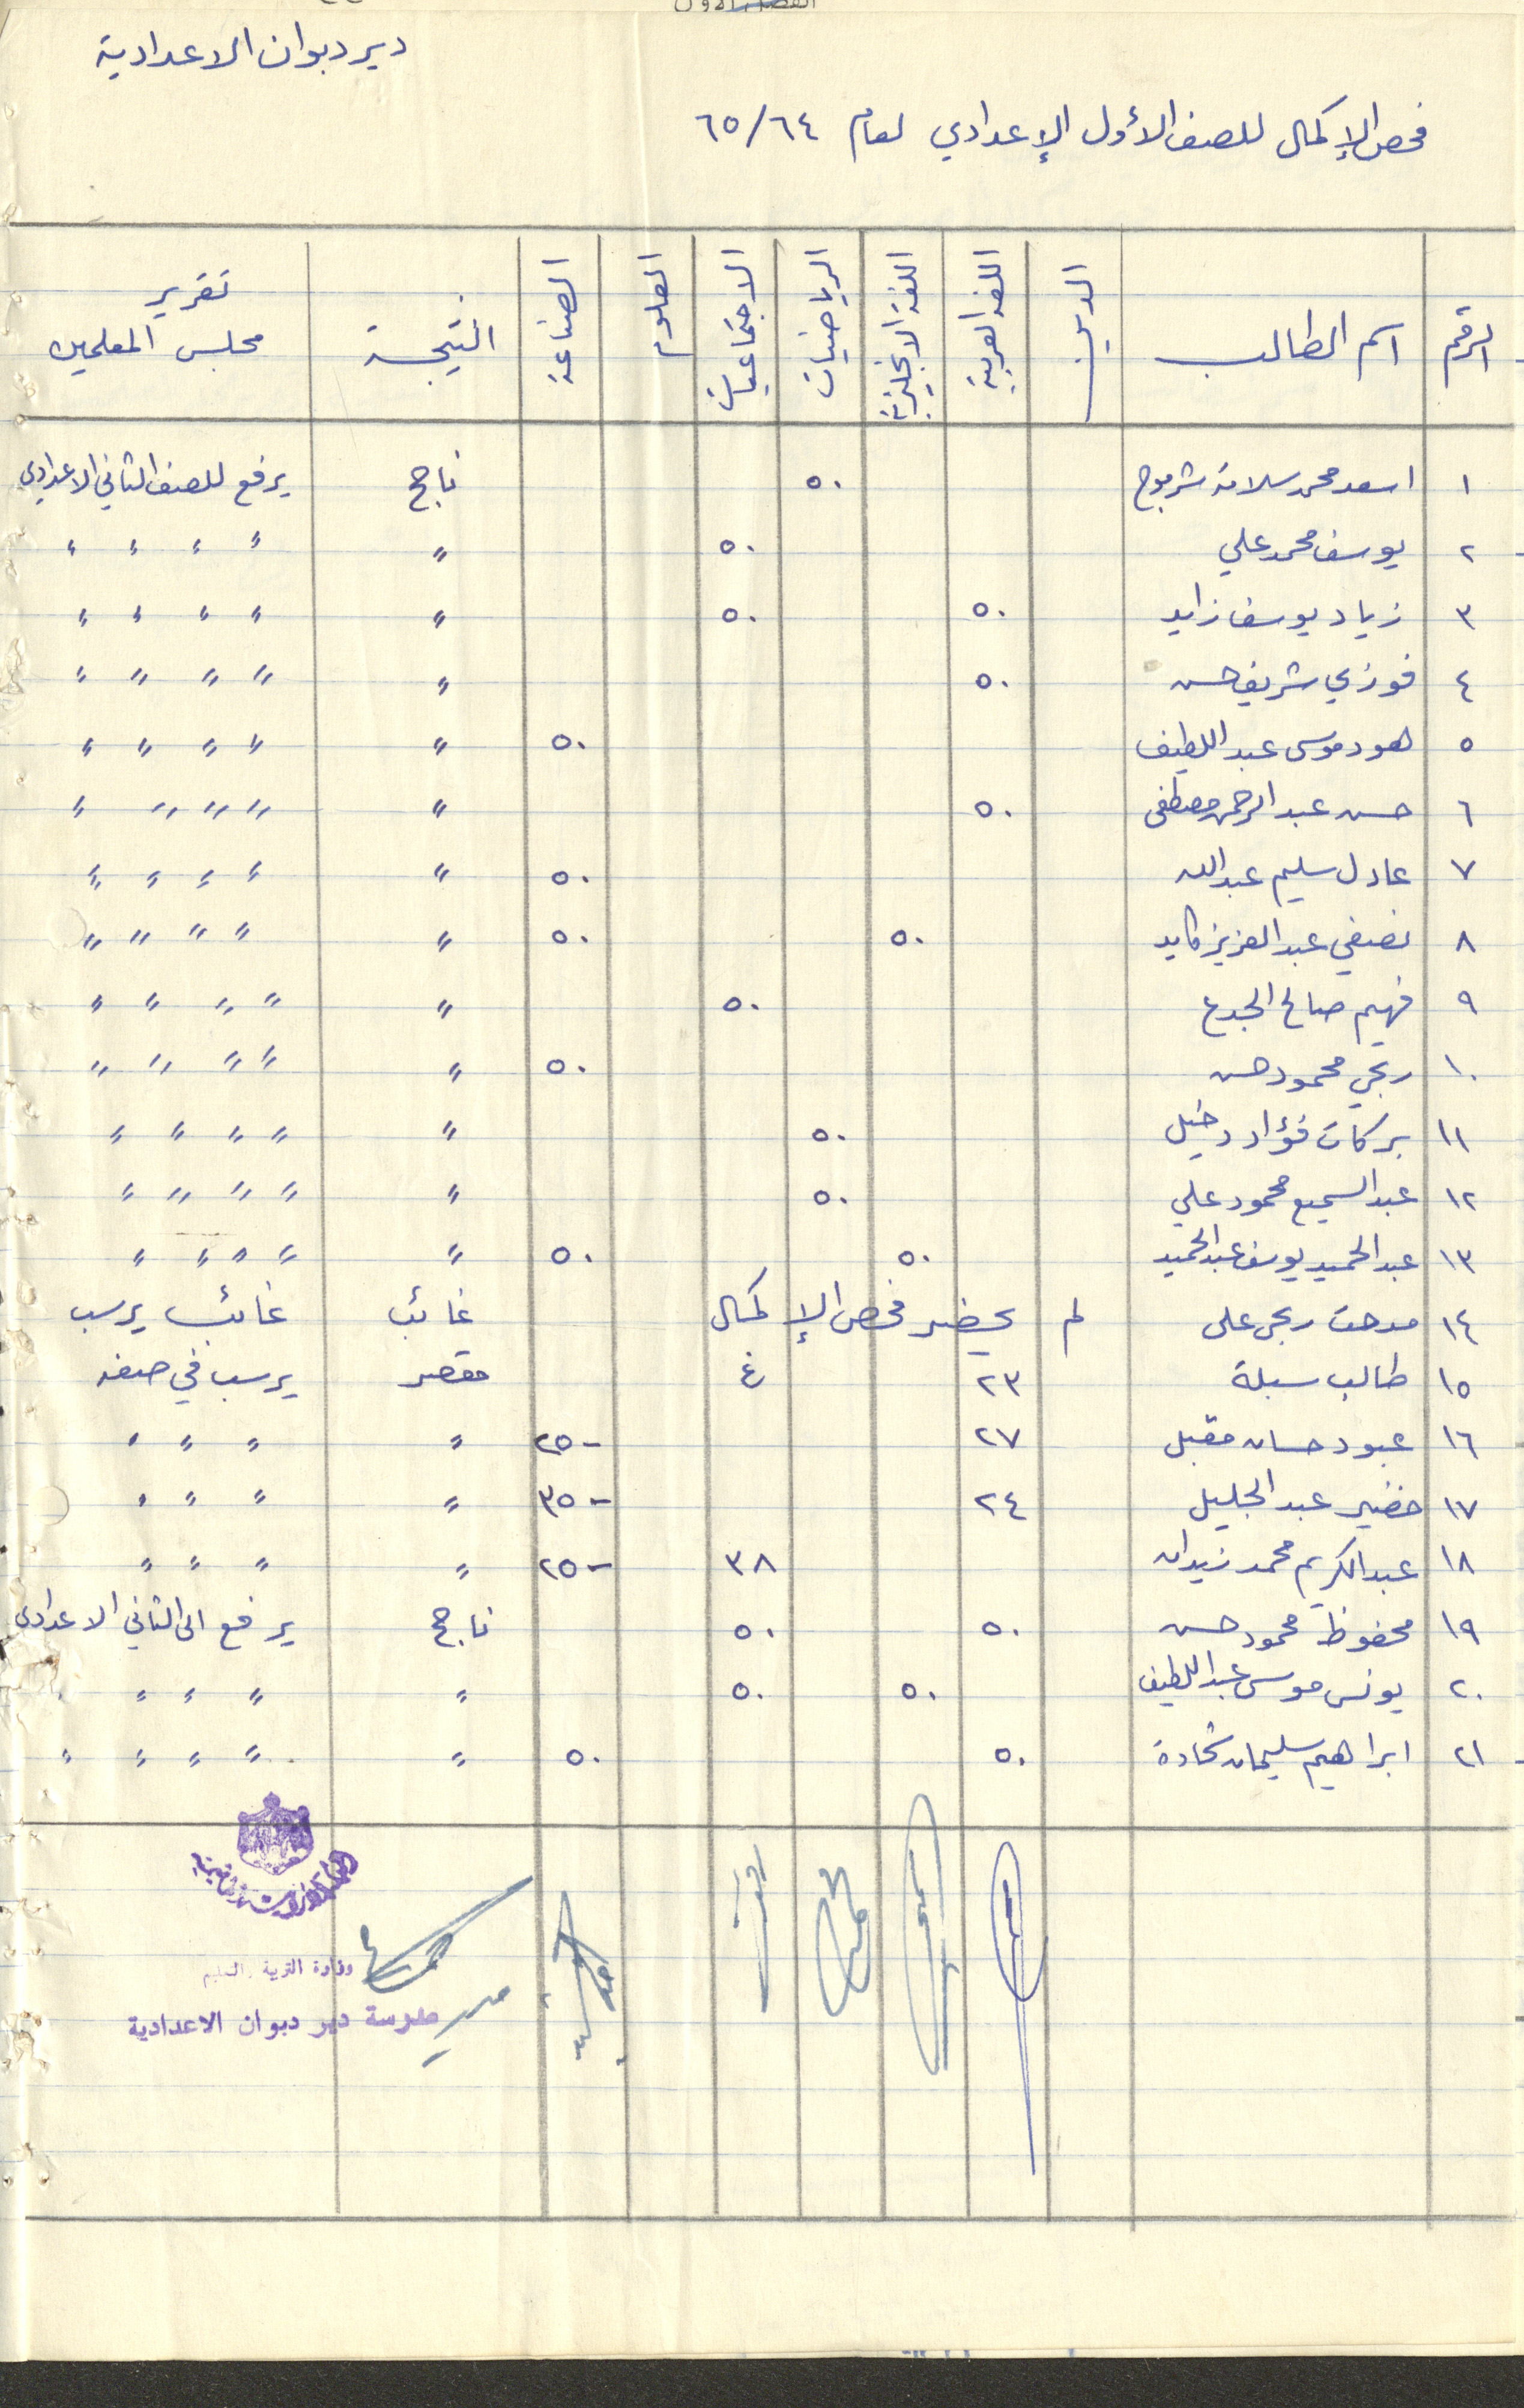 دير دبوان الاعدادية
فحص الإكمال للصف الأول الإعدادي لعام ٦٤/٦٥
الرقم اسم الطالب الدين اللغة العربية اللغة الانجليزية الرياضيات الاجتماعيات العلوم الصناعة النتيجة تقرير مجلس المعلمين
١ اسعد محمد سلامة شرموج ٥٠ ناجح يرفع للصف الثاني الاعدادي
٢ يوسف محمد علي ٥٠ " " " " "
٣ زياد يوسف زايد ٥٠ ٥٠ " " " " "
٤ فوزي شريف حسن ٥٠ " " " " "
٥ هود موسى عبد اللطيف ٥٠ " " " " "
٦ حسن عبد الرحمن مصطفى ٥٠ " " " " "
٧ عادل سليم عبد الله ٥٠ " " " " "
٨ نصفي عبد العزيز كايد ٥٠ ٥٠ " " " " "
٩ فهيم صالح الجدع ٥٠ " " " " "
١٠ ربحي محمود حسن ٥٠ " " " " "
١١ بركات فؤاد دخيل ٥٠ " " " " "
١٢ عبد السميع محمود علي ٥٠ " " " " "
١٣ عبد الحميد يوسف عبد الحميد ٥٠ ٥٠ " " " " "
١٤ مدحت ربحي علي لم يحضر فحص الإكمال غائب غائب يرسب
١٥ طالب سبلة ٢٣ غ مقصر يرسب في صفه
١٦ عبود حسان مقبل ٢٧ -٢٥ " " " "
١٧ خضير عبد الجليل ٢٤ -٣٥ " " " "
١٨ عبد الكريم محمد زيدان ٣٨ -٢٥ " " " "
١٩ محفوظ محمود حسن ٥٠ ٥٠ ناجح يرفع الى الثاني الاعدادي
٢٠ يونس موسى عبد اللطيف ٥٠ ٥٠ " " " " "
٢١ ابراهيم سليمان شحادة ٥٠ ٥٠ " " " " "
وزارة التربية والتعليم
مدير مدرسة دير دبوان الاعدادية